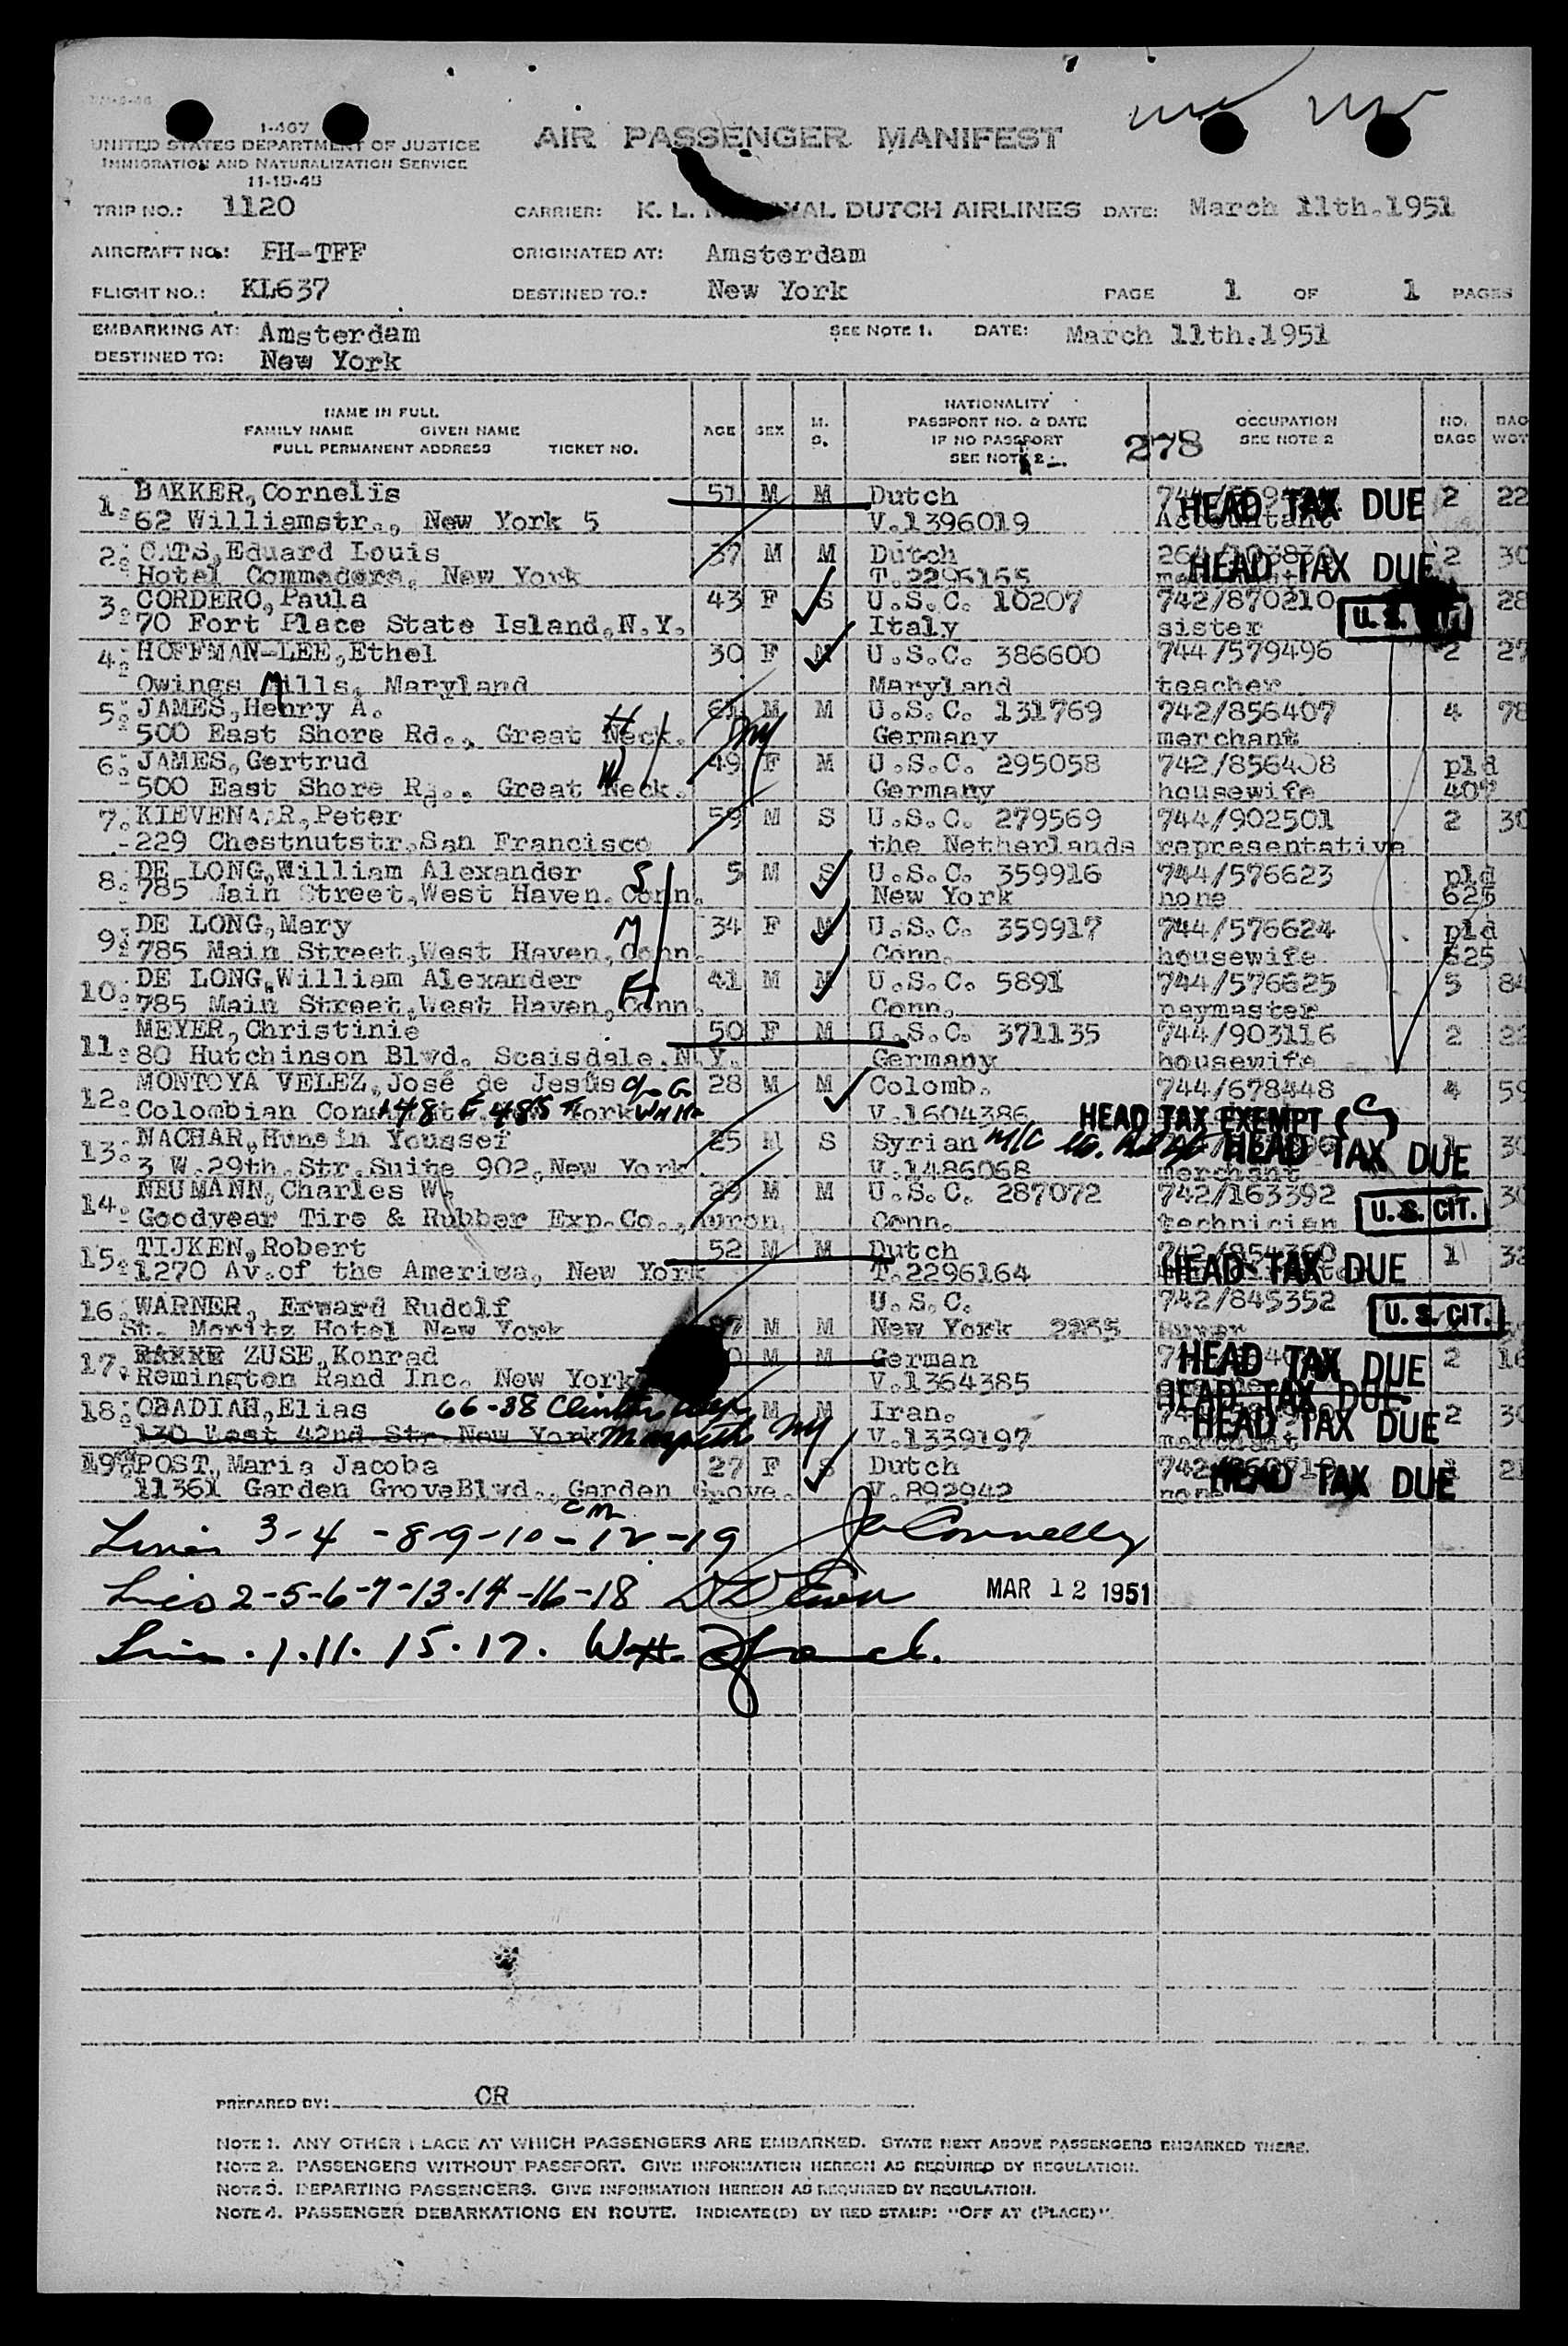 1-407
UNITED STATES DEPARTMENT OF JUSTICE
IMMIGRATION AND NATURALIZATION SERVICE
11-15-45
AIR PASSENGER MANIFEST
TRIP NO.: 1120 CARRIER: K. L. DUTCH AIRLINES DATE: March 11th.1951
AIRCRAFT NO.: PH-TFF ORIGINATED AT: Amsterdam
FLIGHT NO.: KL637 DESTINED TO.: New York PAGE 1 OF 1 PAGES
EMBARKING AT: Amsterdam SEE NOTE 1. DATE: March 11th.1951
DESTINED TO: New York
NAME IN FULL
FAMILY NAME GIVEN NAME
FULL PERMANENT ADDRESS TICKET NO.
AGE SEX M. S.
NATIONALITY
PASSPORT NO. & DATE
IF NO PASSPORT
SEE NOTE 2
278
OCCUPATION
SEE NOTE 2
NO. BAGS
1. BAKKER, Cornelis 51 M M Dutch HEAD TAX DUE 2 22
62 Williamstr., New York 5 V.1396019
2. CATS, Eduard Louis 37 M M Dutch HEAD TAX DUE 2 30
Hotel Commodore, New York T.2296165
3. CORDERO, Paula 43 F S U.S.C. 10207 742/870210 U.S. 28
70 Fort Place State Island, N.Y. Italy sister
4. HOFFMAN-LEE, Ethel 30 F M U.S.C. 386600 744/579496 2 27
Owings Mills, Maryland Maryland teacher
5. JAMES, Henry A. H 61 M M U.S.C. 131769 742/856407 4 78
500 East Shore Rd., Great Neck. NY Germany merchant
6. JAMES, Gertrud W 49 F M U.S.C. 295058 742/856408 pld
500 East Shore Rd., Great Neck. Germany housewife 407
7. KIEVENAAR, Peter 59 M S U.S.C. 279569 744/902501 2 30
229 Chestnutstr.San Francisco the Netherlands representative
8. DE LONG, William Alexander S 5 M S U.S.C. 359916 744/576623 pld
785 Main Street, West Haven, Conn. New York none 625
9. DE LONG, Mary M 34 F M U.S.C. 359917 744/576624 pld
785 Main Street, West Haven, Conn. Conn. housewife 625
10. DE LONG, William Alexander F 41 M M U.S.C. 5891 744/576625 5 84
785 Main Street, West Haven, Conn. Conn. paymaster
11. MEYER, Christinie 50 F M U.S.C. 371135 744/903116 2 22
80 Hutchinson Blvd. Scaisdale, N.Y. Germany housewife
12. MONTOYA VELEZ, José de Jesús 28 M M Colomb. 744/678448 4 59
Colombian 148 E 48 St York V.1604386 HEAD TAX EXEMPT
13. NACHAR, Husein Youssef 25 M S Syrian HEAD TAX DUE 1 30
3 W.29th.Str.Suite 902, New York. V.1486068 merchant
14. NEUMANN, Charles W. 29 M M U.S.C. 287072 742/163392 U.S. CIT. 30
Goodyear Tire & Rubber Exp.Co., Conn. technician
15. TIJKEN, Robert 52 M M Dutch HEAD TAX DUE 1 32
1270 Av.of the America, New York T.2296164
16. WARNER, Erward Rudolf U.S.C. 742/845352 U.S. CIT.
St. Moritz Hotel New York M M New York 2265 Buyer
17. ZUSE, Konrad M M German HEAD TAX DUE 2 16
Remington Rand Inc. New York V.1364385 HEAD TAX DUE
18. OBADIAH, Elias 66-38 Clinton Ave M M Iran. HEAD TAX DUE 2 30
130 East 42nd Str. New York Maspeth NY V.1339197 merchant
19. POST, Maria Jacoba 27 F S Dutch HEAD TAX DUE 1 21
11361 Garden GroveBlvd., Garden Grove. V.892942 none
Lines 3-4-8-9-10-12-19 Connelly
Lines 2-5-6-7-13-14-16-18 MAR 12 1951
Lines 1.11.15.17.
PREPARED BY: CR
NOTE 1. ANY OTHER PLACE AT WHICH PASSENGERS ARE EMBARKED. STATE NEXT ABOVE PASSENGERS EMBARKED THERE.
NOTE 2. PASSENGERS WITHOUT PASSPORT. GIVE INFORMATION HEREON AS REQUIRED BY REGULATION.
NOTE 3. DEPARTING PASSENGERS. GIVE INFORMATION HEREON AS REQUIRED BY REGULATION.
NOTE 4. PASSENGER DEBARKATIONS EN ROUTE. INDICATE(D) BY RED STAMP: "OFF AT (PLACE)".